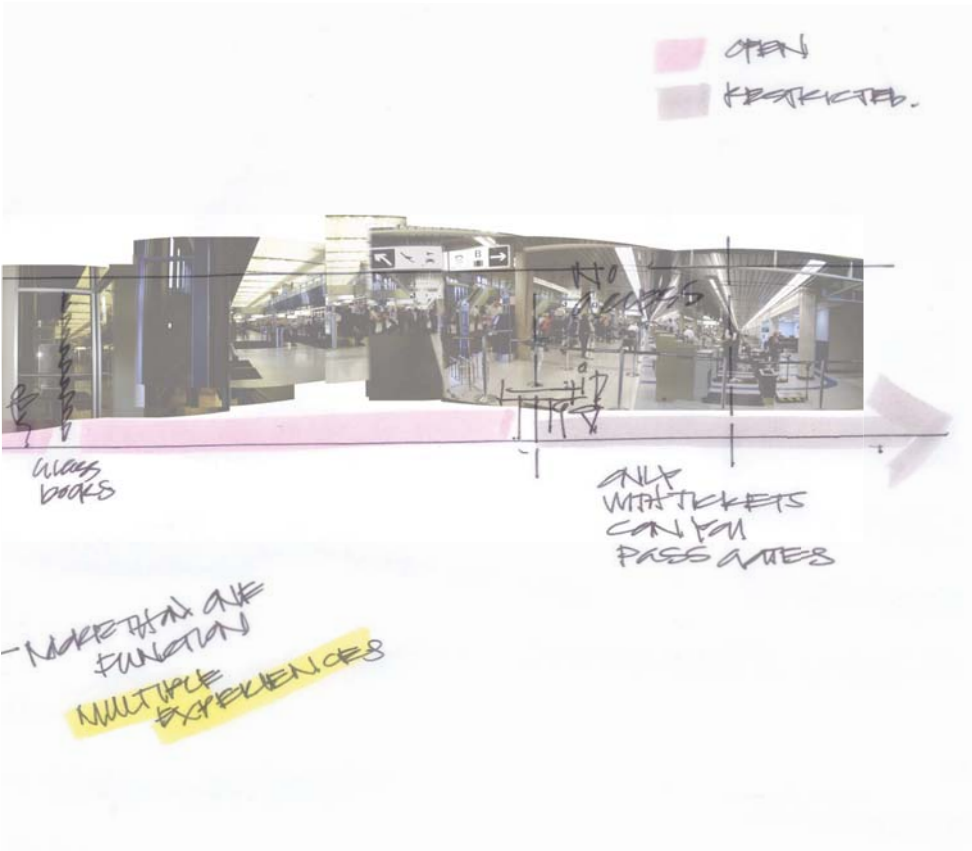 OPEN
RESTRICTED.
B
NO
ACCESS
GLASS
DOORS
ONLY
WITH TICKETS
CAN YOU
PASS GATES
- MORE THAN ONE
FUNCTION
MULTIPLE
EXPERIENCES